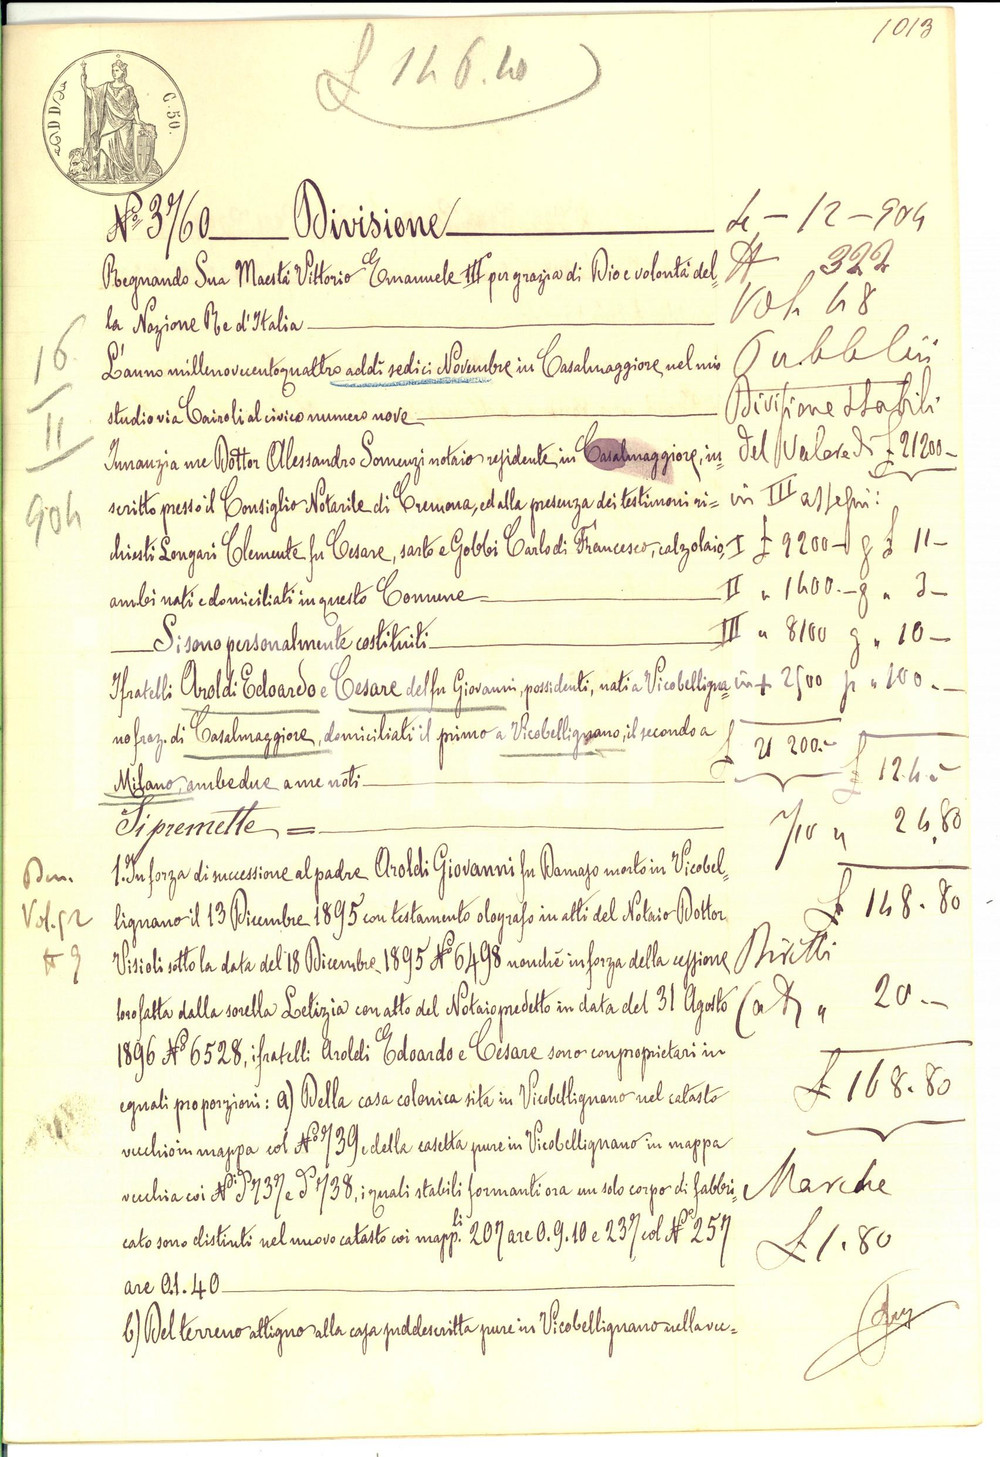 1013
£ 146.40
ADDì
C. 50.
N.º 3760 Divisione
Regnando Sua Maestà Vittorio Emanuele III per grazia di Dio e volontà del=
la Nazione Re d'Italia
L'anno millenovecentoquattro addì sedici Novembre in Casalmaggiore nel mio
studio via Cairoli al civico numero nove
Innanzi a me Dottor Alessandro Somenzi notaio residente in Casalmaggiore, in=
scritto presso il Consiglio Notarile di Cremona, ed alla presenza dei testimoni ri=
chiesti Longari Clemente fu Cesare, sarto e Gobbi Carlo di Francesco, calzolaio,
ambi nati e domiciliati in questo Comune
Si sono personalmente costituiti
I fratelli Aroldi Edoardo e Cesare del fu Giovanni, possidenti, nati a Vicobelligna=
no fraz. di Casalmaggiore, domiciliati il primo a Vicobellignano, il secondo a
Milano, ambedue a me noti
Si premette =
1. In forza di successione al padre Aroldi Giovanni fu Damaso morto in Vicobel=
lignano il 13 Dicembre 1895 con testamento olografo in atti del Notaio Dottor
Visioli sotto la data del 18 Dicembre 1895 Nº 6498 nonchè in forza della cessione
loro fatta dalla sorella Letizia con atto del Notaio predetto in data del 31 Agosto
1896 Nº 6528, i fratelli Aroldi Edoardo e Cesare sono comproprietari in
eguali proporzioni: a) Della casa colonica sita in Vicobellignano nel catasto
vecchio in mappa col Nº 739 e della casetta pure in Vicobellignano in mappa
vecchia coi Ni P 737 e P 738, i quali stabili formanti ora un solo corpo di fabbri=
cato sono distinti nel nuovo catasto coi mapp.li 207 are 0.9.10 e 237 col Nº 257
are 0.1.40
b) Del terreno attiguo alla casa suddescritta pure in Vicobellignano nella vec=
16
II
904
Vol. 52
# 9
12 - 904
# 322
Vol. 48
Pubblici
Divisione stabili
del Valore di £ 21200-
in III assegni:
I £ 9200- g £ 11-
II " 1400.- g " 3-
III " 8100 g " 10-
2500 " 100.-
£ 21 200.-
£ 124.-
7/10 " 24,80
£ 148.80
Diritti
" 20.-
£ 168.80
Marche
£ 1.80